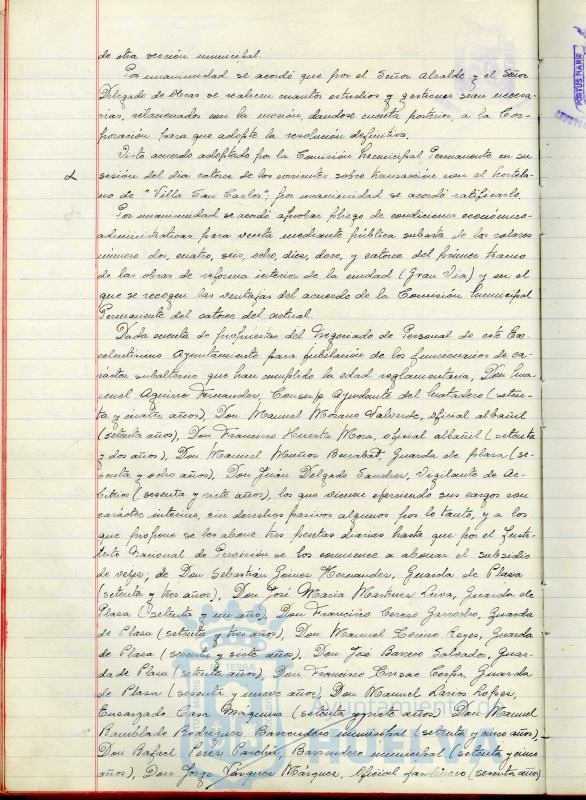 de otra sección municipal.
Por unanimidad se acordó que por el Señor Alcalde y el Señor
Delegado de Obras se realicen cuantos estudios y gestiones sean necesa-
rias, relacionados con la moción, dandose cuenta posterior, a la Cor-
poración para que adopte la resolución definitiva.
Visto acuerdo adoptado por la Comisión Municipal Permanente en su
sesión del dia catorce de los corrientes sobre transación con el hortela-
no de "Villa San Carlos"; por unanimidad se acordó ratificarlo.
Por unanimidad se acordó aprobar pliego de condiciones económico-
administrativas para venta mediante pública subasta de los solares
número dos, cuatro, seis, ocho, diez, doce, y catorce del primer tramo
de las obras de reforma interior de la ciudad (Gran Via) y en el
que se recogen las ventajas del acuerdo de la Comisión Municipal
Permanente del catorce del actual.
Dada cuenta de propuestas del Negociado de Personal de este Ex-
celentisimo Ayuntamiento para jubilación de los funcionarios de ca-
rácter subalterno que han cumplido la edad reglamentaria, Don Ma-
nuel Aguirre Fernandez, Conserje Ayudante del Matadero (seten-
ta y cuatro años), Don Manuel Morano Valverde, oficial albañil
(setenta años), Don Francisco Huerta Mora, oficial albañil (setenta
y dos años), Don Manuel Muños Guarda de plaza (se-
senta y ocho años), Don Juán Delgado Sandres, Vigilante de Ar-
bitrios (sesenta y siete años), los que vienen ejerciendo sus cargos con
carácter interino, sin derechos pasivos algunos por lo tanto, y a los
que propone se les abone tres pesetas diarias hasta que por el Insti-
tuto Nacional de Previsión se les comience a abonar el subsidio
de vejez; de Don Sebastián Gomez Hernandez, Guarda de Plaza
(setenta y tres años), Don José Maria Martinez Guarda de
Plaza (setenta y un años), Don Francisco Cerezo Garrocho, Guarda
de Plaza (setenta y tres años), Don Manuel Reyes, Guarda
de Plaza (sesenta y siete años), Don José Barrero Salvador, Guar-
da de Plaza (setenta años), Don Francisco Guarda
de Plaza (sesenta y nueve años), Don Manuel Larios Lopez,
Encargado Casa Máquina (setenta y siete años) Don Manuel
Ramblado Rodriguez, Barrendero municipal (setenta y cinco años),
Don Rafael Perez Barrendero municipal (setenta y cinco
años), Don Jorge Vázquez Márquez, Oficial Jardinero (sesenta años)
PORTUS MARIS
TERRÆ
Ayuntamiento de